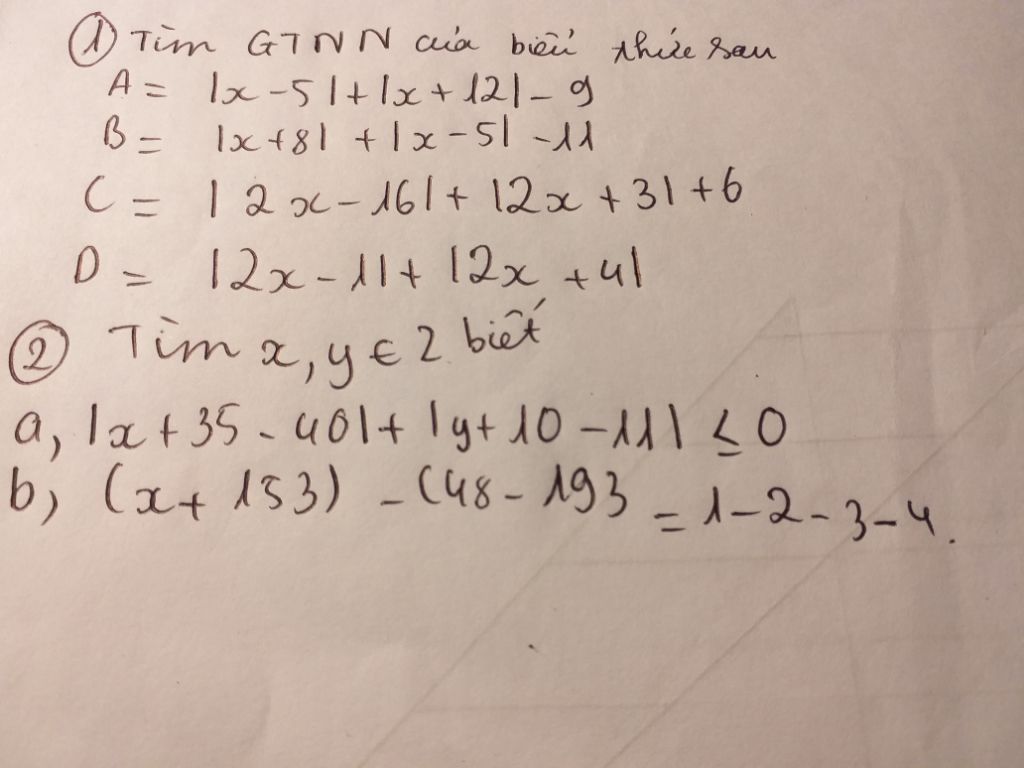 ① Tìm GTNN của biểu thức sau
A = |x - 5| + |x + 12| - 9
B = |x + 8| + |x - 5| - 11
C = |2x - 16| + |2x + 3| + 6
D = |2x - 1| + |2x + 4|
② Tìm x, y ∈ Z biết
a, |x + 35 - 40| + |y + 10 - 11| ≤ 0
b, (x + 153) - (48 - 193 = 1 - 2 - 3 - 4.